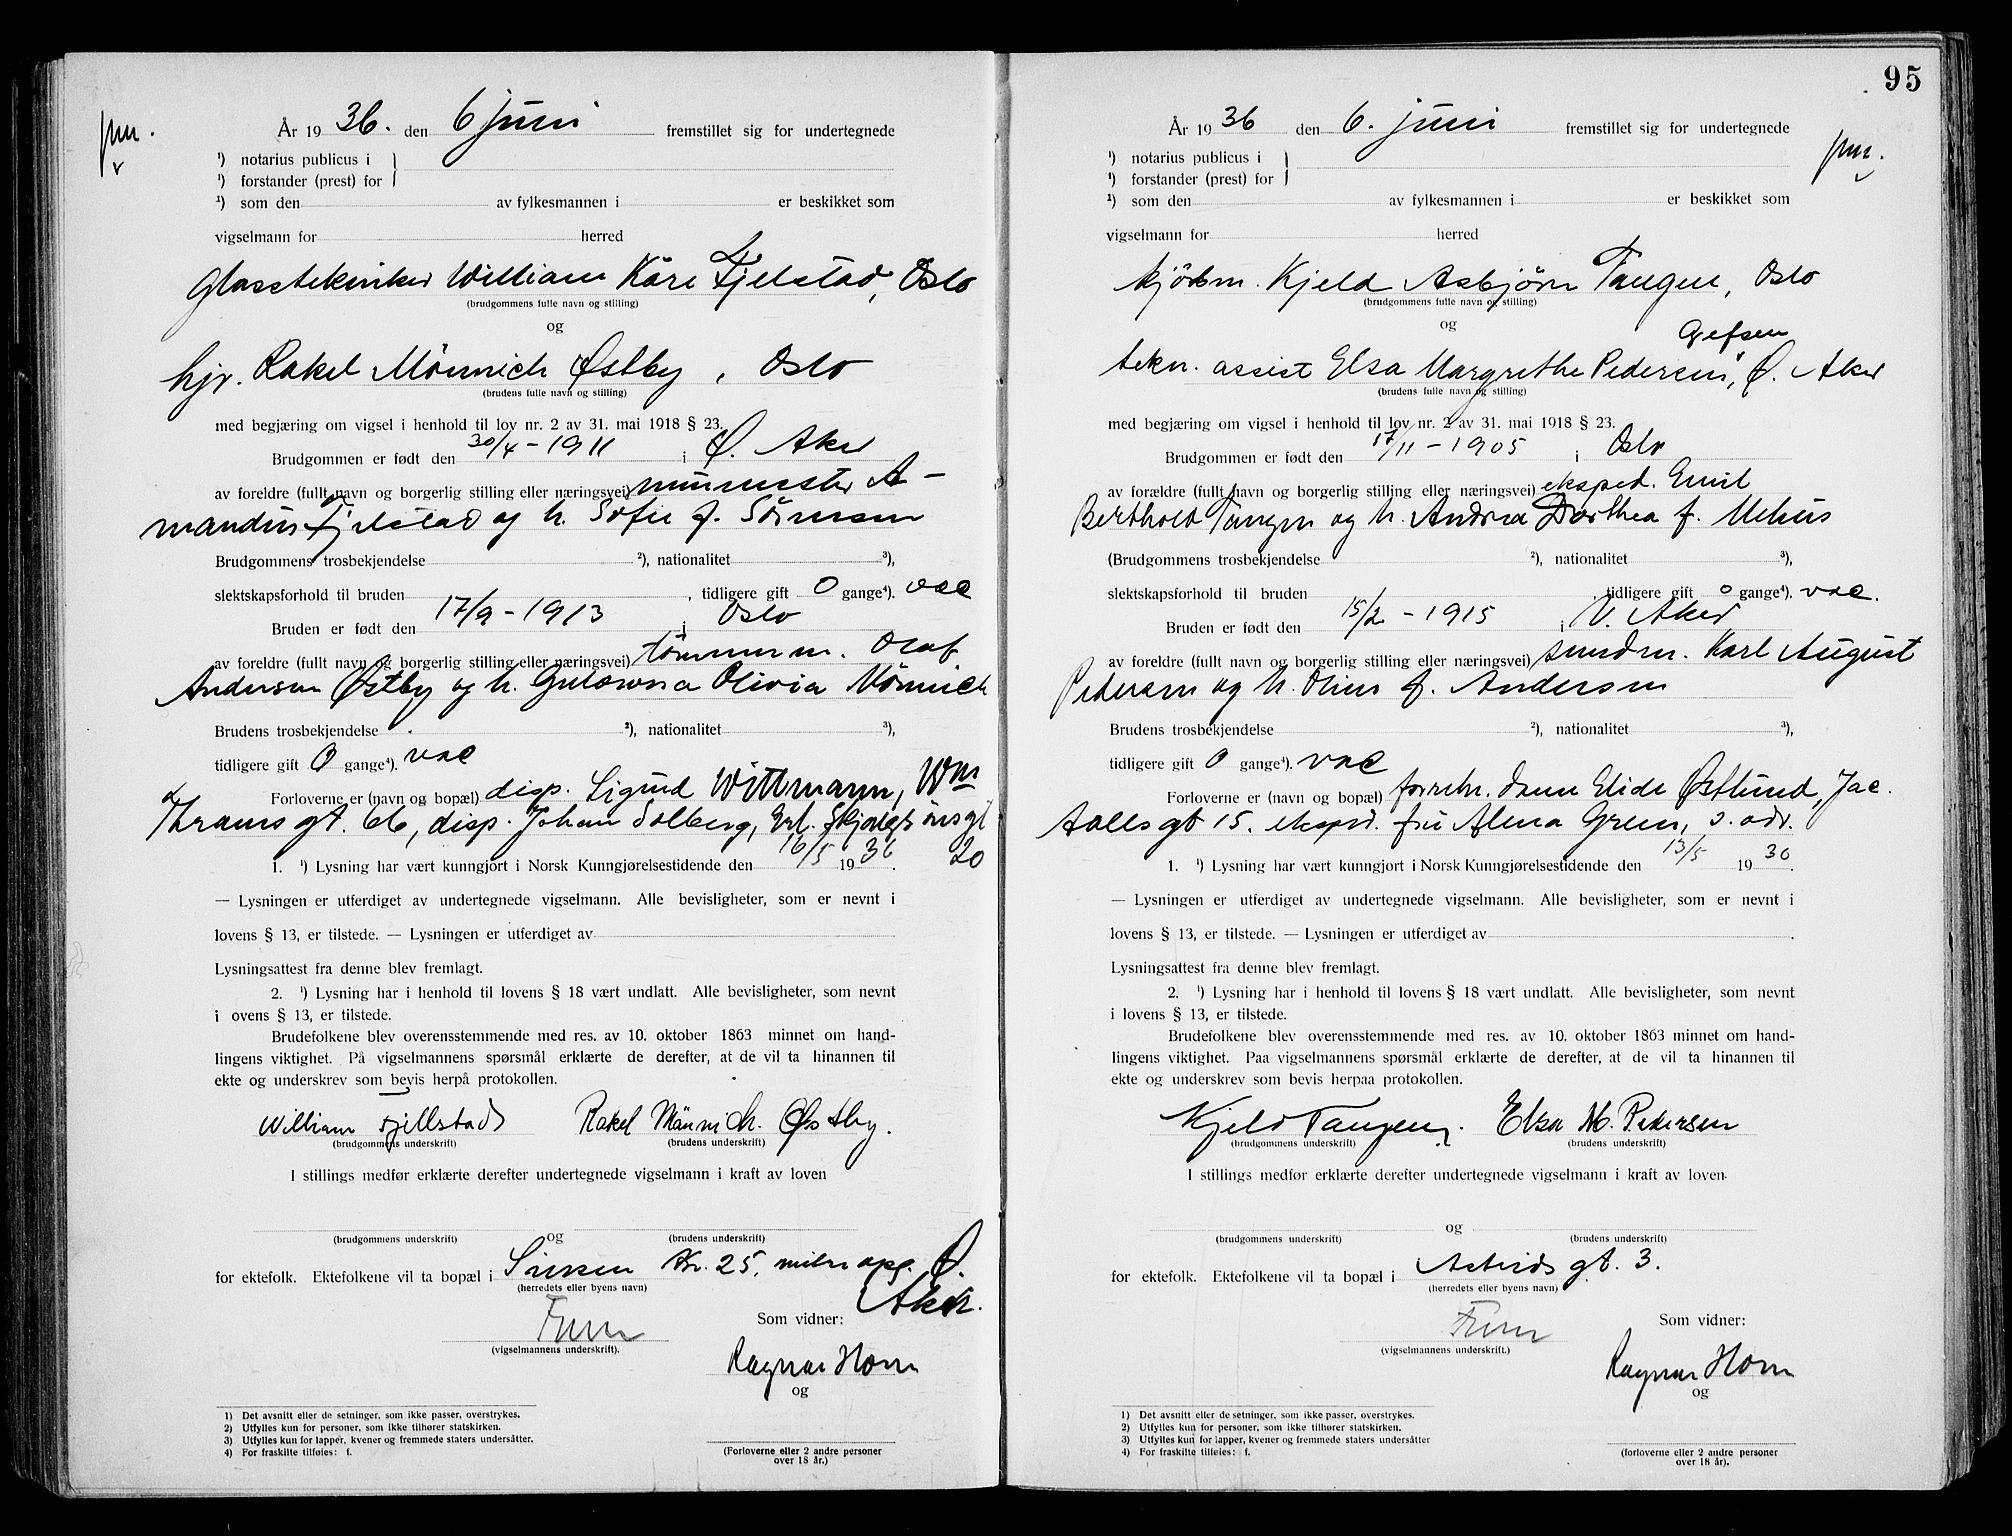 pm.
År 1936. den 6 juni fremstillet sig for undertegnede
¹) notarius publicus i
¹) forstander (prest) for
¹) som den av fylkesmannen i er beskikket som
vigselmann for herred
Glasstekniker William Kåre Fjelstad, Oslo
(brudgommens fulle navn og stilling)
og
hjr. Rakel Mönnich Østby, Oslo
(brudens fulle navn og stilling)
med begjæring om vigsel i henhold til lov nr. 2 av 31. mai 1918 § 23.
Brudgommen er født den 30/4 - 1911 i Ø. Aker
av foreldre (fullt navn og borgerlig stilling eller næringsvei) murmester A-
mandus Fjelstad og h. Sofie f. Sörensen
Brudgommens trosbekjendelse ²), nationalitet ³),
slektskapsforhold til bruden , tidligere gift 0 gange⁴). vac
Bruden er født den 17/9 - 1913 i Oslo
av foreldre (fullt navn og borgerlig stilling eller næringsvei) tömmerm. Olaf
Andersen Østby og h. Olivia Mönnich
Brudens trosbekjendelse ²), nationalitet ³),
tidligere gift 0 gange⁴). vac
Forloverne er (navn og bopæl) disp. Sigurd Wittmann, Wm
Thranes gt. 66, disp. Johan Solberg, Erl. Skjalgsönsgt
20
1. ¹) Lysning har vært kunngjort i Norsk Kunngjørelsestidende den 16/5 1936.
— Lysningen er utferdiget av undertegnede vigselmann. Alle bevisligheter, som er nevnt i
lovens § 13, er tilstede. — Lysningen er utferdiget av
Lysningsattest fra denne blev fremlagt.
2. ¹) Lysning har i henhold til lovens § 18 vært undlatt. Alle bevisligheter, som nevnt
i ovens § 13, er tilstede.
Brudefolkene blev overensstemmende med res. av 10. oktober 1863 minnet om hand-
lingens viktighet. På vigselmannens spørsmål erklærte de derefter, at de vil ta hinannen til
ekte og underskrev som bevis herpå protokollen.
William Fjellstad Rakel Männich Østby.
(brudgommens underskrift) (brudens underskrift)
I stillings medfør erklærte derefter undertegnede vigselmann i kraft av loven
og
(brudgommens underskrift) (brudens underskrift)
for ektefolk. Ektefolkene vil ta bopæl i Sinsen Kr. 25. Ø.
Aker.
(herredets eller byens navn)
Som vidner:
(vigselmannens underskrift).
Ragnar Horn
og
1) Det avsnitt eller de setninger, som ikke passer, overstrykes.
2) Utfylles kun for personer, som ikke tilhører statskirken.
3) Utfylles kun for lapper, kvener og fremmede staters undersåtter.
4) For fraskilte tilføies: f.
(Forloverne eller 2 andre personer
over 18 år.)
95
pm.
År 1936 den 6. juni fremstillet sig for undertegnede
¹) notarius publicus i
¹) forstander (prest) for
¹) som den av fylkesmannen i er beskikket som
vigselmann for herred
kjöbm. Kjeld Asbjörn Tangen, Oslo
(brudgommens fulle navn og stilling)
og
Grefsen
tekn. assist Elsa Margrethe Pedersen, Ø. Aker
(brudens fulle navn og stilling)
med begjæring om vigsel i henhold til lov nr. 2 av 31. mai 1918 § 23.
Brudgommen er født den 17/11 - 1905 i Oslo
av forældre (fullt navn og borgerlig stilling eller næringsvei) eksped. Emil
Berthold Tangen og h. Andrea Dorthea f. Mehus
(Brudgommens trosbekjendelse ²), nationalitet ³),
slektskapsforhold til bruden , tidligere gift 0 gange⁴). vac.
Bruden er født den 15/2 - 1915 i V. Aker
av foreldre (fullt navn og borgerlig stilling eller næringsvei) smedm. Karl August
Pedersen og h. Oline f. Andersen
Brudens trosbekjendelse ²), nationalitet ³),
tidligere gift 0 gange⁴). vac
Forloverne er (navn og bopæl) forretn. dame Elide Østlund, Jac.
Aalls gt 15. eksped. fru Alma Green, s. adr.
1. ¹) Lysning har vært kunngjort i Norsk Kunngjørelsestidende den 13/5 1936.
— Lysningen er utferdiget av undertegnede vigselmann. Alle bevisligheter, som er nevnt i
lovens § 13, er tilstede. — Lysningen er utferdiget av .
Lysningsattest fra denne blev fremlagt.
2. ¹) Lysning har i henhold til lovens § 18 vært undlatt. Alle bevisligheter, som nevnt
i lovens § 13, er tilstede.
Brudefolkene blev overensstemmende med res. av 10. oktober 1863 minnet om hand-
lingens viktighet. Paa vigselmannens spørsmål erklærte de derefter, at de vil ta hinannen til
ekte og underskrev som bevis herpaa protokollen.
Kjeld Tangen. Elsa M. Pedersen
(brudgommens underskrift) (brudens underskrift)
I stillings medfør erklærte derefter undertegnede vigselmann i kraft av loven
og
(brudgommens underskrift) (brudens underskrift)
for ektefolk. Ektefolkene vil ta bopæl i Astrids gt. 3.
(herredets eller byens navn)
Som vidner:
(vigselmannens underskrift.)
Ragnar Horn
og
1) Det avsnitt eller de setninger, som ikke passer, overstrykes.
2) Utfylles kun for personer, som ikke tilhører statskirken.
3) Utfylles kun for lapper, kvener og fremmede staters undersåtter
4) For fraskilte tilføies: f.
(forloverne eller 2 andre personer
over 18 år).